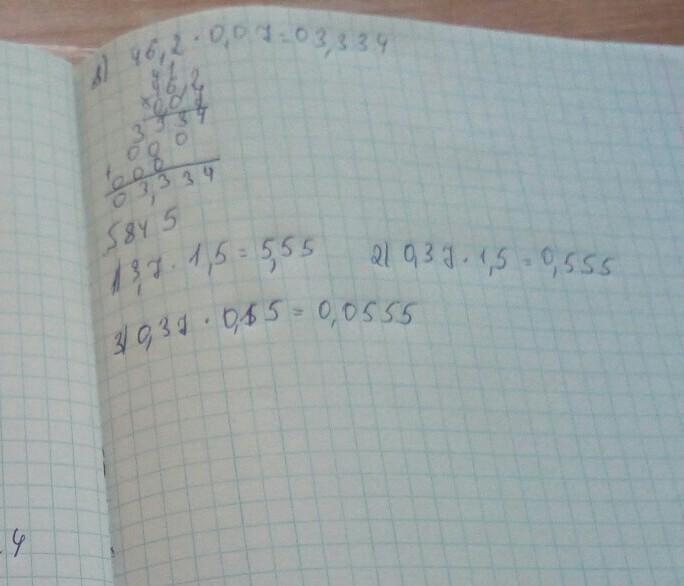 в) 46,2 · 0,07 = 03,334
41
46,2
× 0,07
3 3 3 4
0 0 0
+ 0 0 0
0 3, 3 3 4
5845
1) 3,7 · 1,5 = 5,55
2) 0,37 · 1,5 = 0,555
3) 0,37 · 0,15 = 0,0555
4